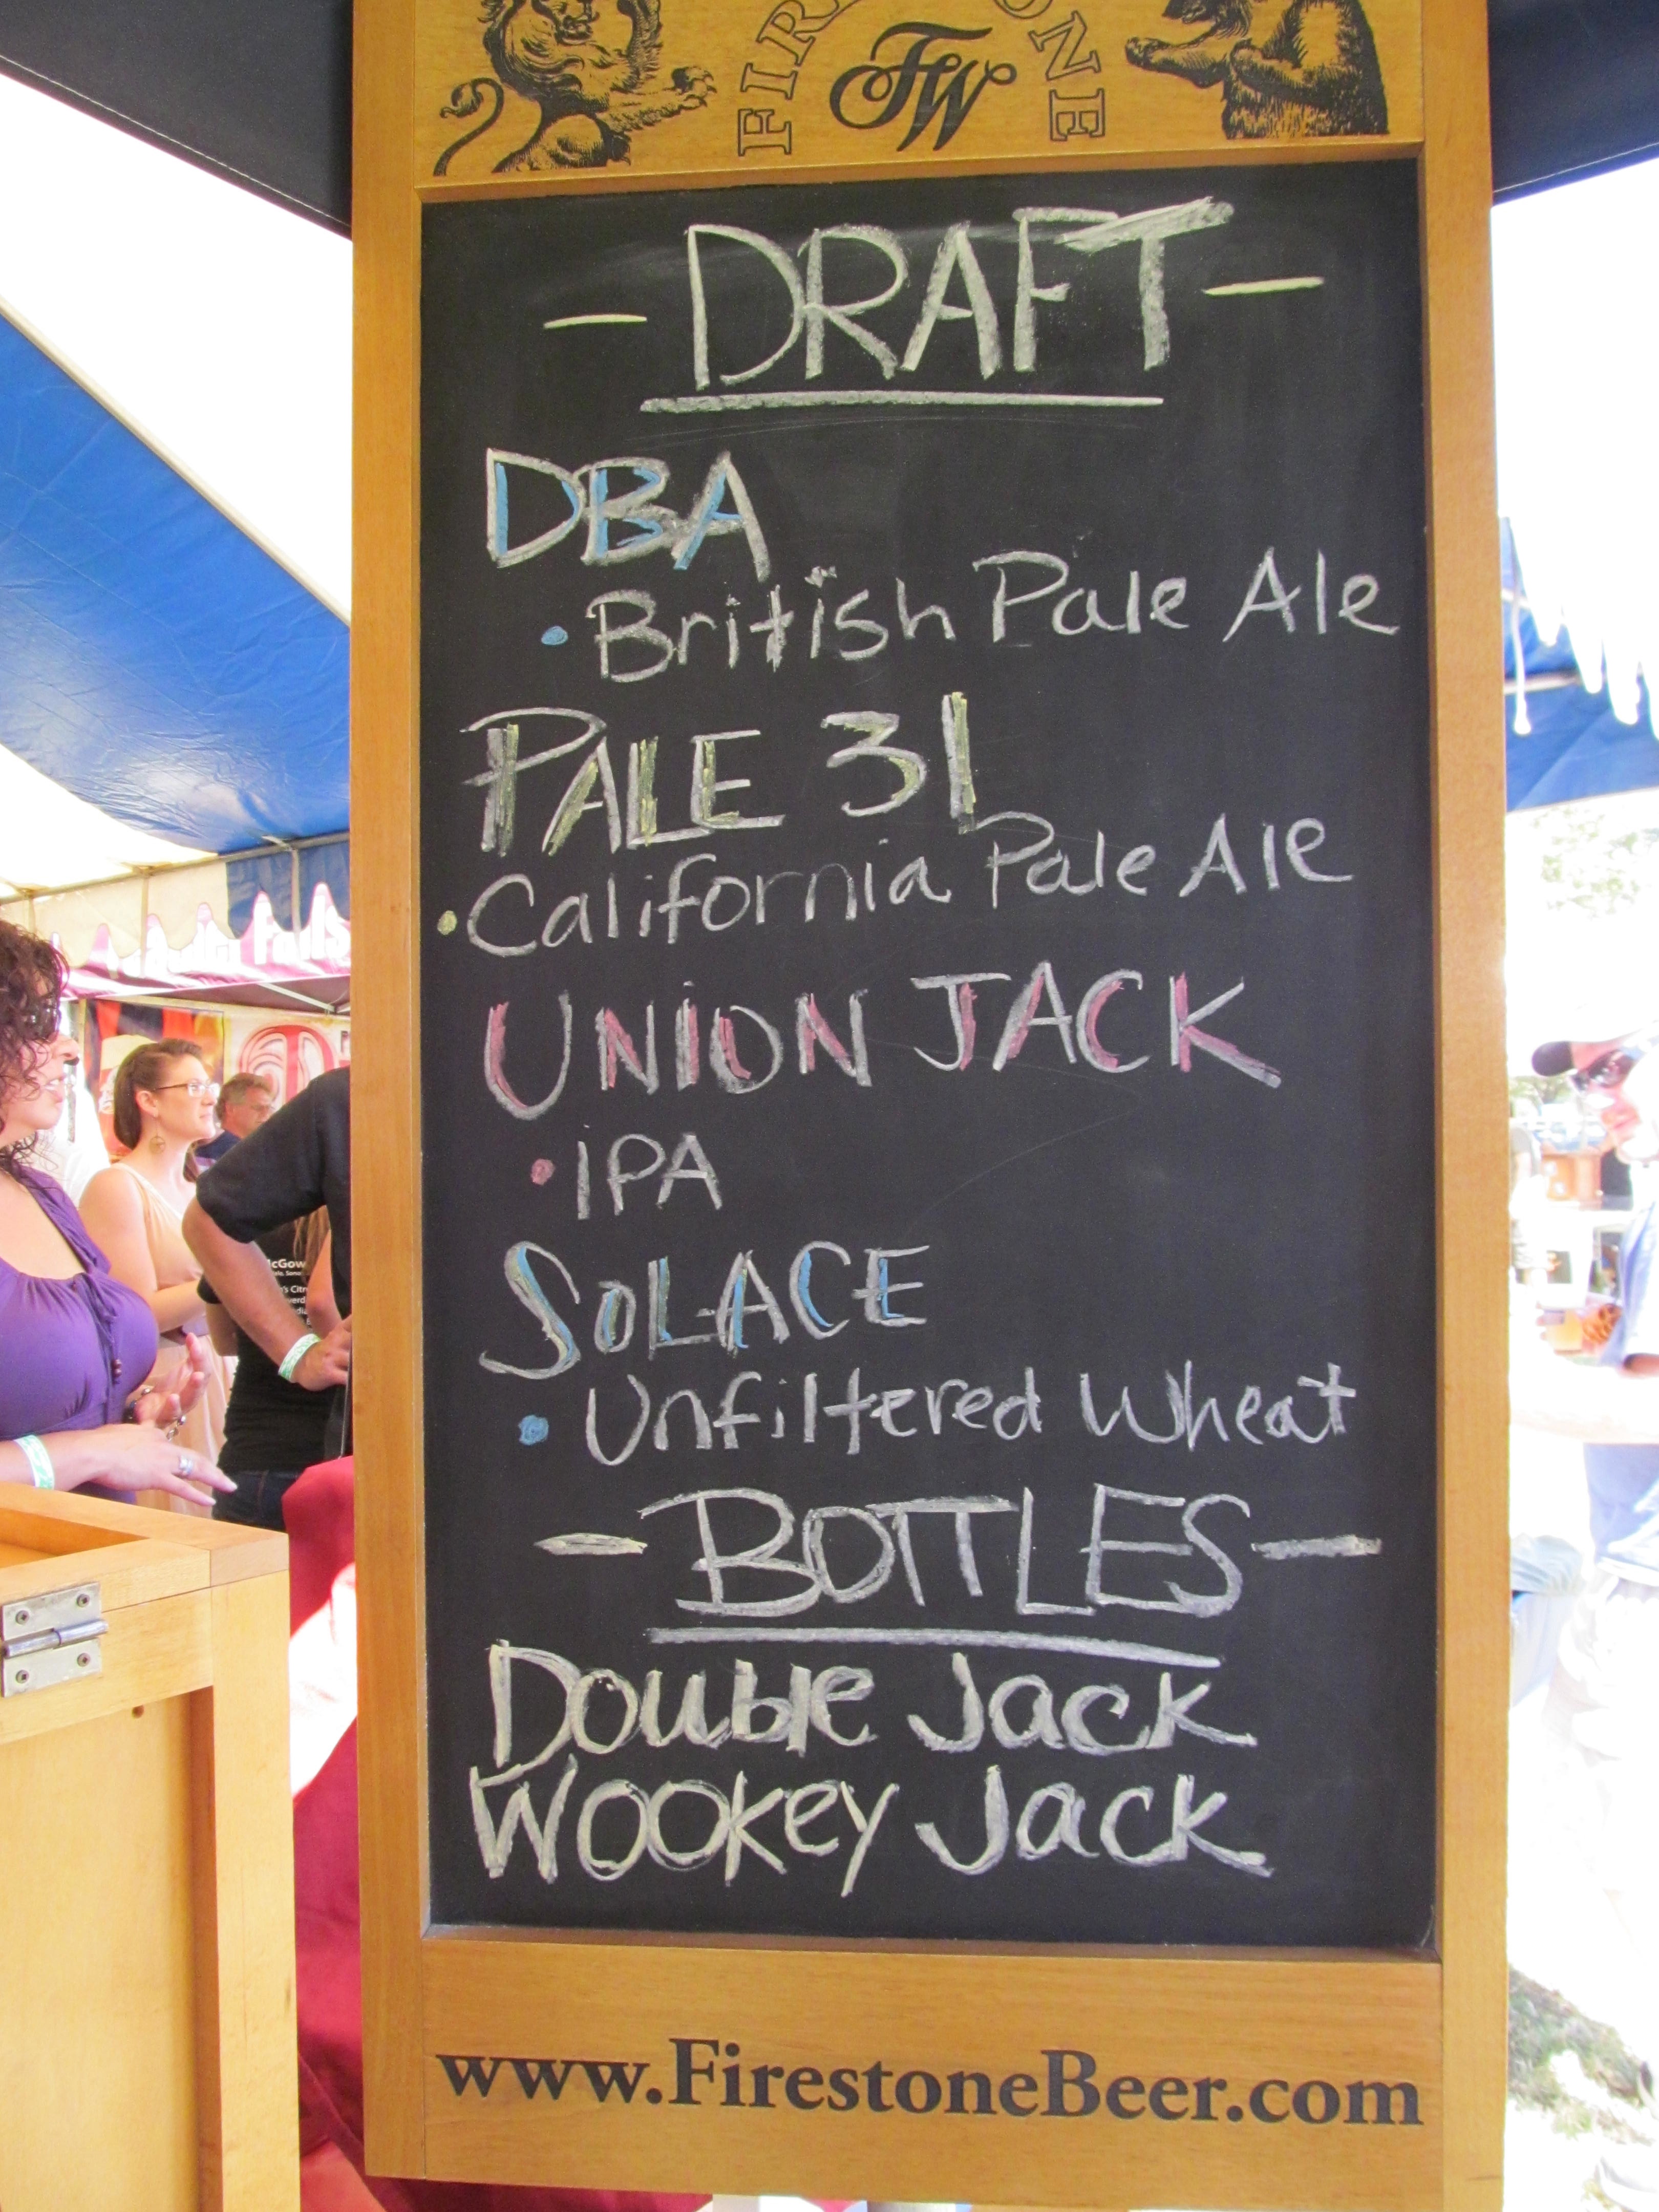 FIRESTONE
FW
- DRAFT -
DBA
• British Pale Ale
PALE 31
• California Pale Ale
UNION JACK
• IPA
SOLACE
• Unfiltered Wheat
- BOTTLES -
Double Jack
Wookey Jack
www.FirestoneBeer.com